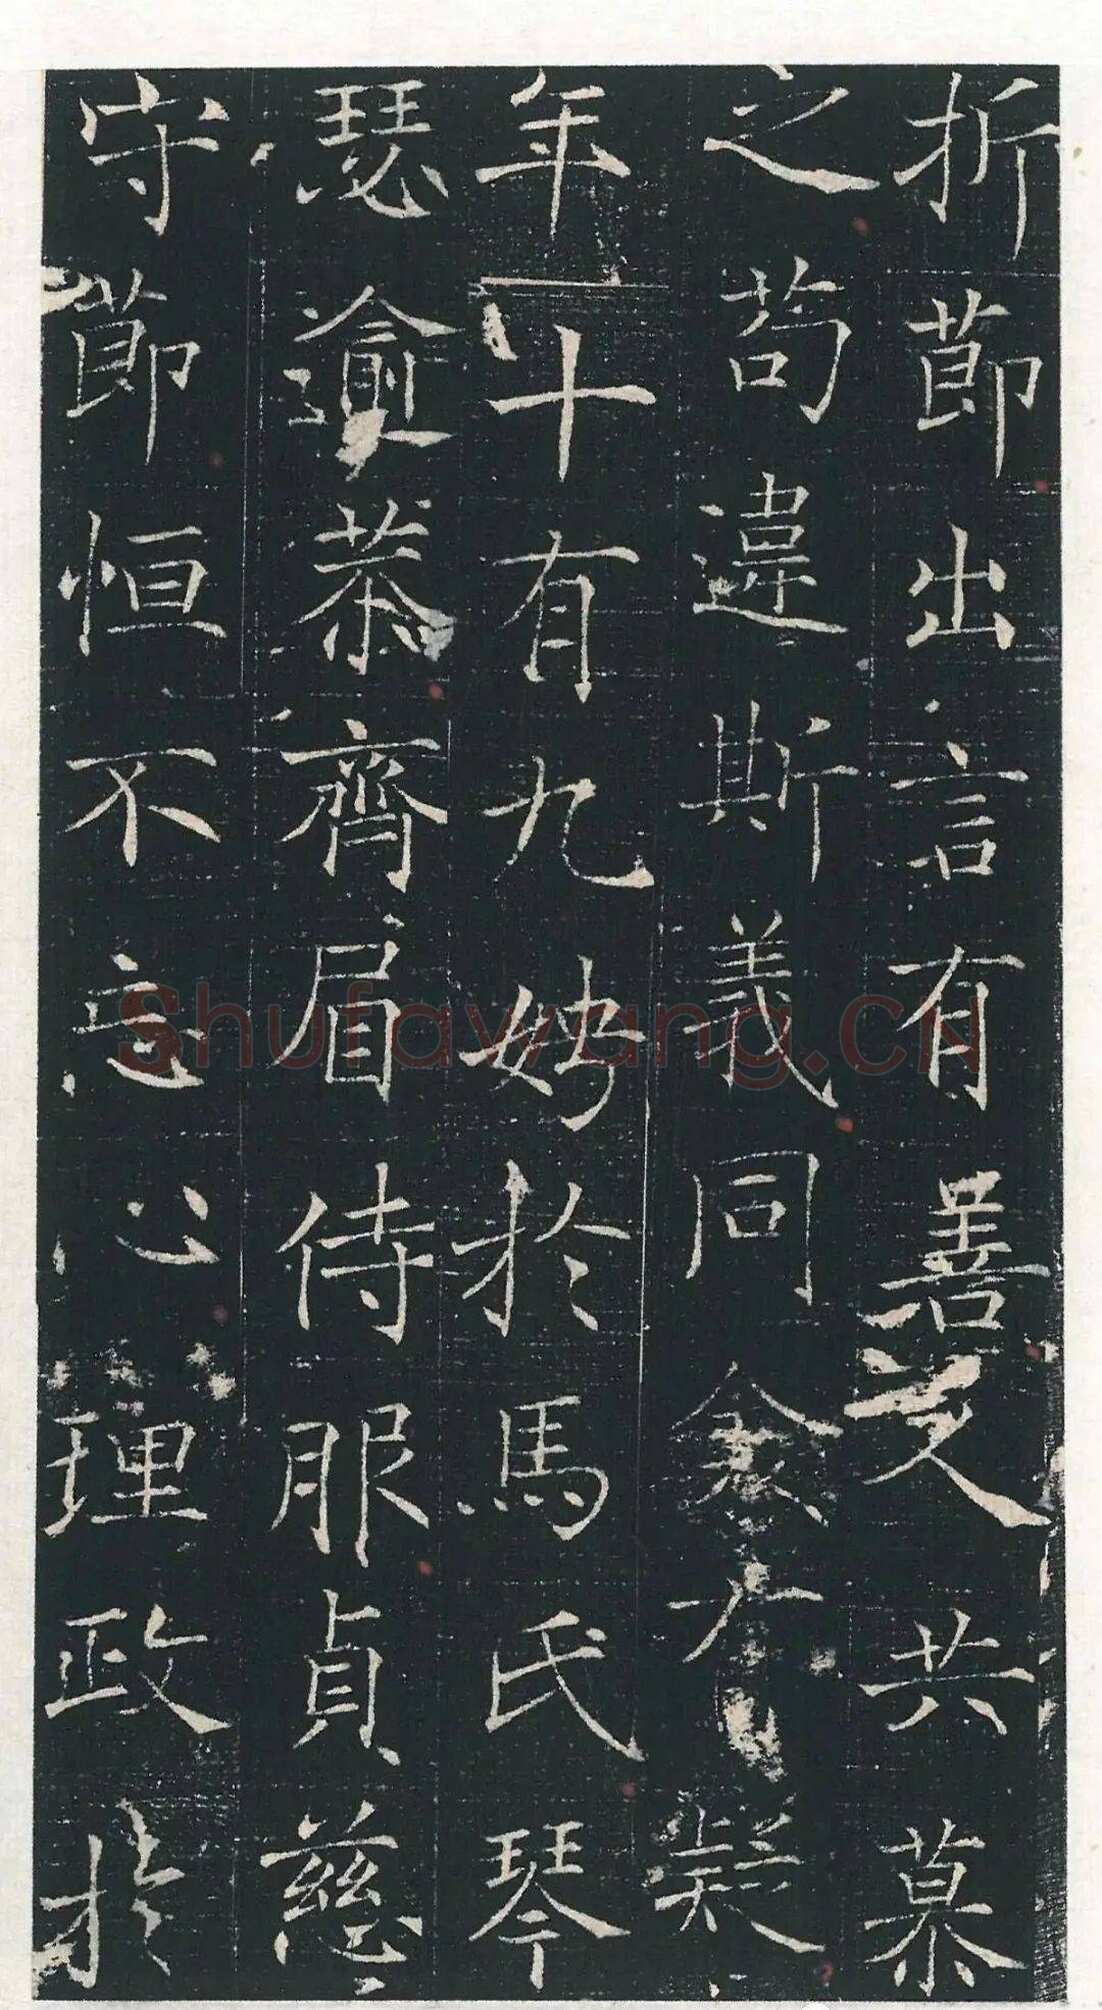 折節出言有善共慕
之苟違斯義同衾有
年十有九娉於馬氏琴
瑟逾恭齊眉侍服貞慈
守節恒不忘心理政於
Shufawang.CN